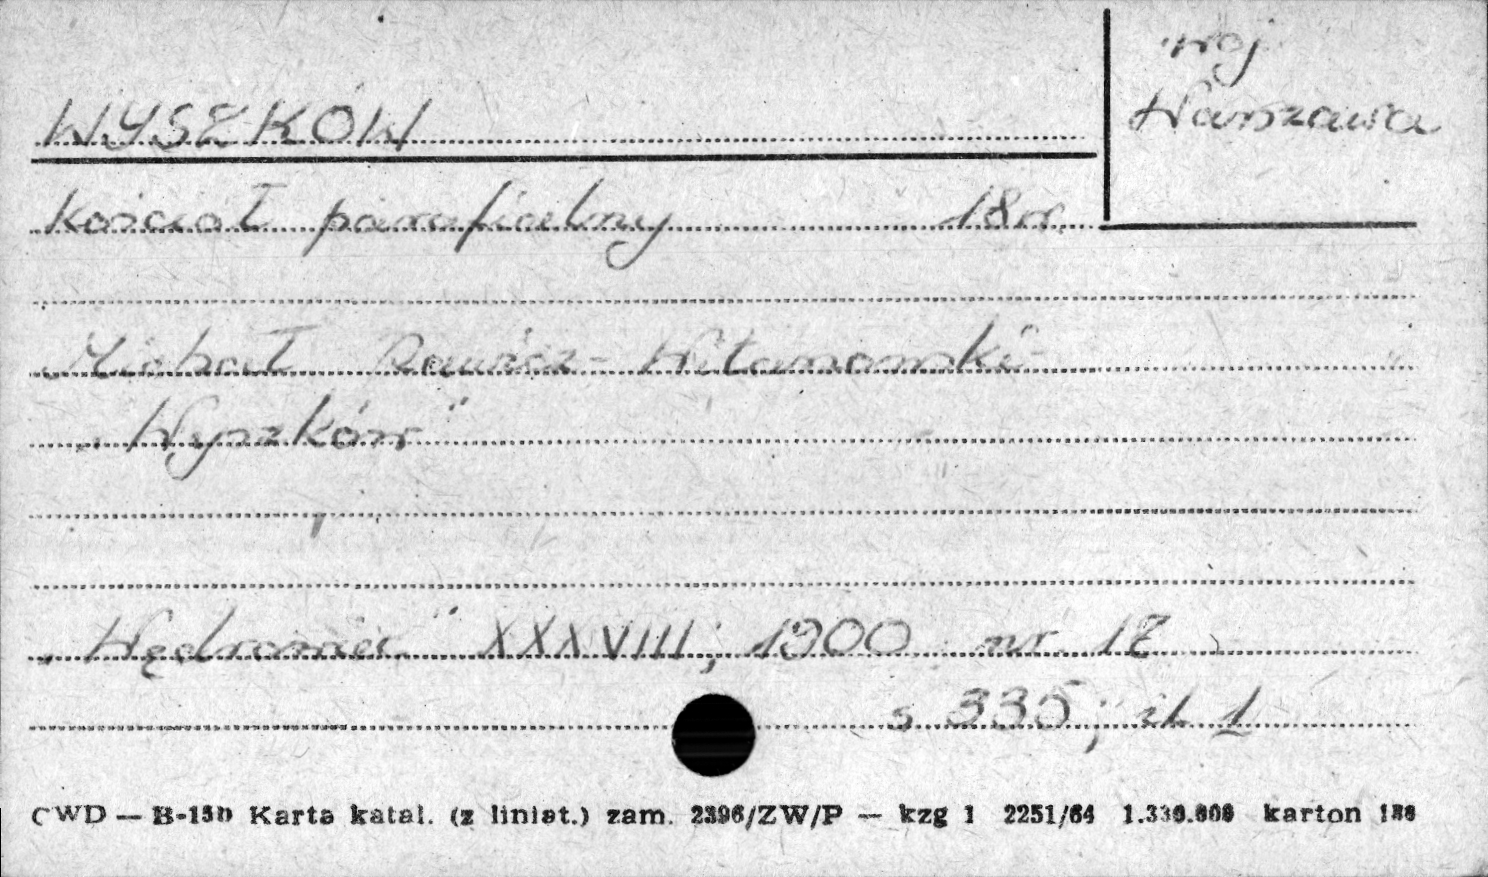 woj.
Warszawa
WYSZKÓW
Kościoł parafialny 18 w.
Michał Rawicz-Witanowski
„Wyszków"
„Wędrowiec" XXXVIII; 1900 nr. 17
s 335; il 1
CWD — B-150 Karta katal. (z liniat.) zam. 2396/ZW/P — kzg 1 2251/64 karton